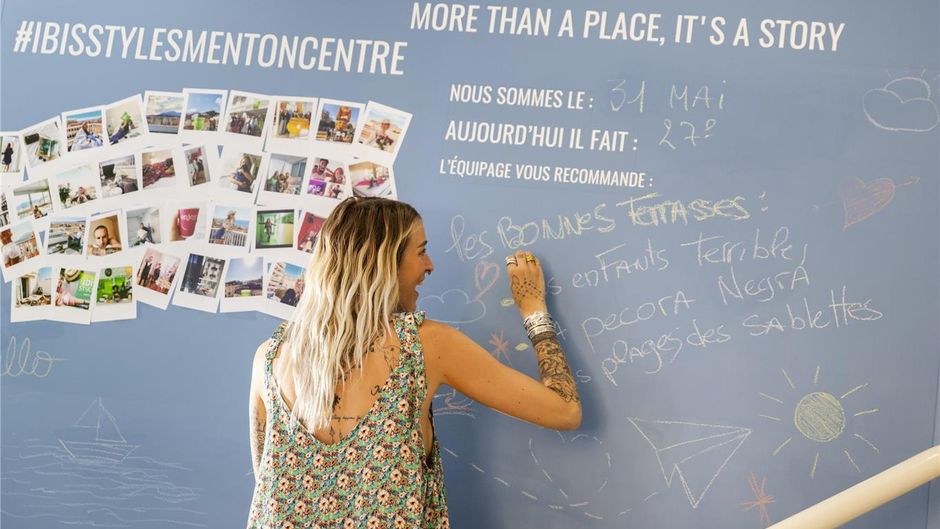 #IBISSTYLESMENTONCENTRE
MORE THAN A PLACE, IT'S A STORY
NOUS SOMMES LE : 31 MAI
AUJOURD'HUI IL FAIT : 27°
L'ÉQUIPAGE VOUS RECOMMANDE :
les BONNES TERRASSES :
enfants Terrible,
pecora Negra
plages des Sablettes
llo